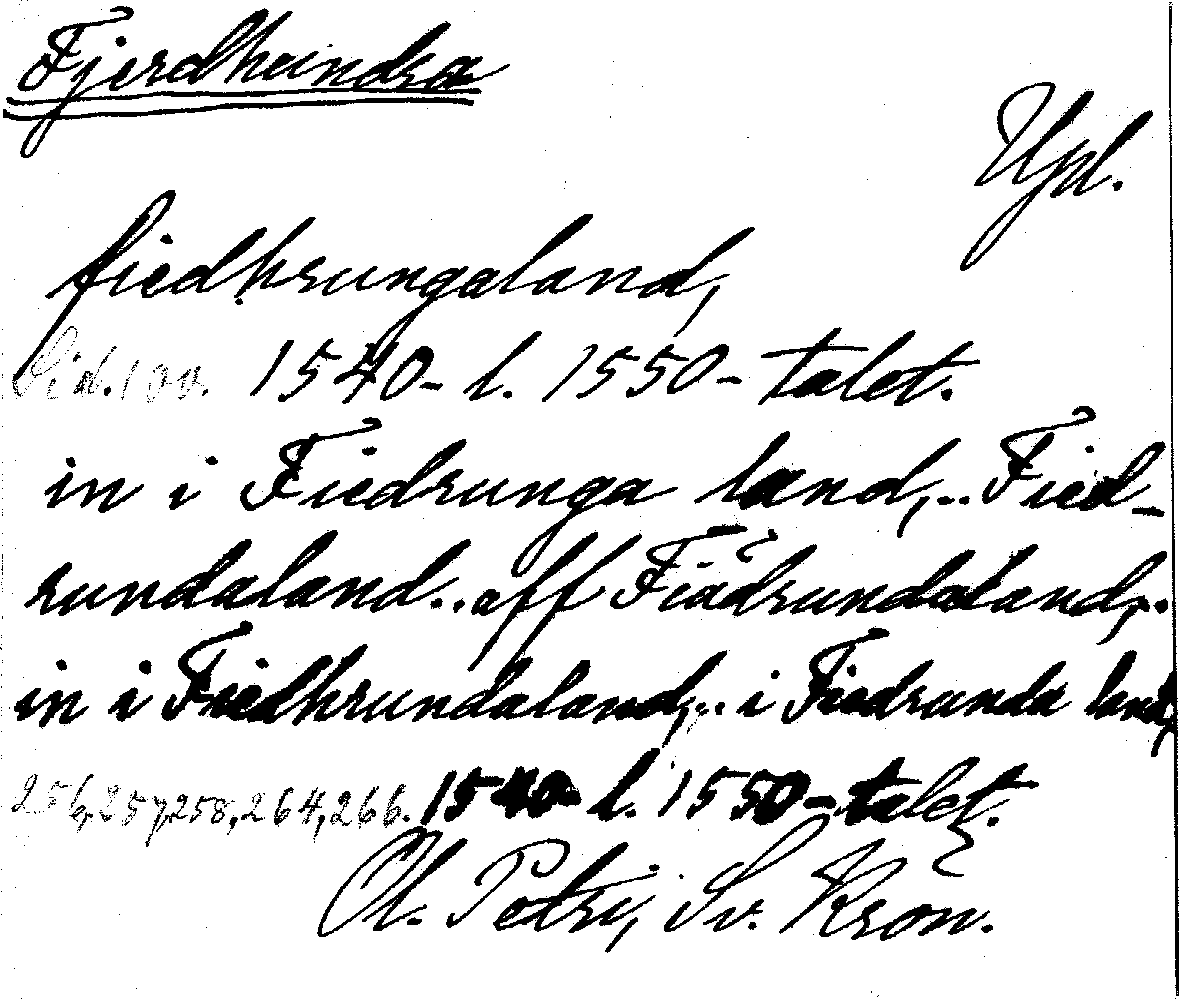 Fjerdhundra
Upl.
fiedhrungaland,
Sid. 100. 1540- l. 1550-talet.
in i Fiedrunga land,.. Fied-
rundaland.. aff Fiädrundaland,..
in i Fiedhrundaland,.. i Fiedrunda land,
256, 257, 258, 264, 266. 1540- l. 1550-talet.
Ol. Petri, Sv. Krön.